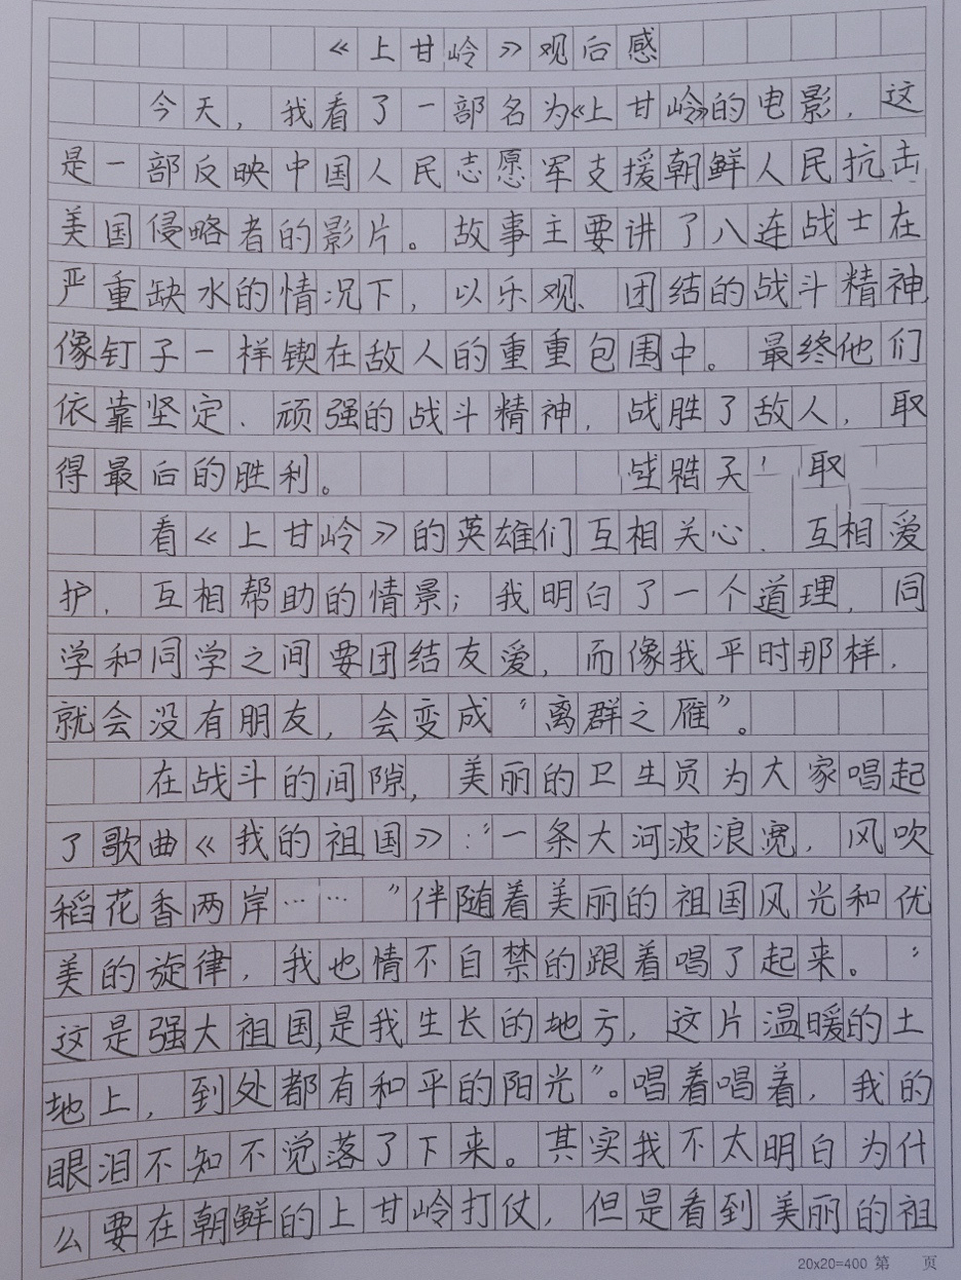 《上甘岭》观后感
今天，我看了一部名为《上甘岭》的电影，这
是一部反映中国人民志愿军支援朝鲜人民抗击
美国侵略者的影片。故事主要讲了八连战士在
严重缺水的情况下，以乐观、团结的战斗精神，
像钉子一样锲在敌人的重重包围中。最终他们
依靠坚定、顽强的战斗精神，战胜了敌人，取
得最后的胜利。
看《上甘岭》的英雄们互相关心、互相爱
护，互相帮助的情景；我明白了一个道理，同
学和同学之间要团结友爱，而像我平时那样，
就会没有朋友，会变成“离群之雁”。
在战斗的间隙，美丽的卫生员为大家唱起
了歌曲《我的祖国》：“一条大河波浪宽，风吹
稻花香两岸……”伴随着美丽的祖国风光和优
美的旋律，我也情不自禁的跟着唱了起来。“
这是强大祖国，是我生长的地方，这片温暖的土
地上，到处都有和平的阳光”。唱着唱着，我的
眼泪不知不觉落了下来。其实我不太明白为什
么要在朝鲜的上甘岭打仗，但是看到美丽的祖
20x20=400 第 页